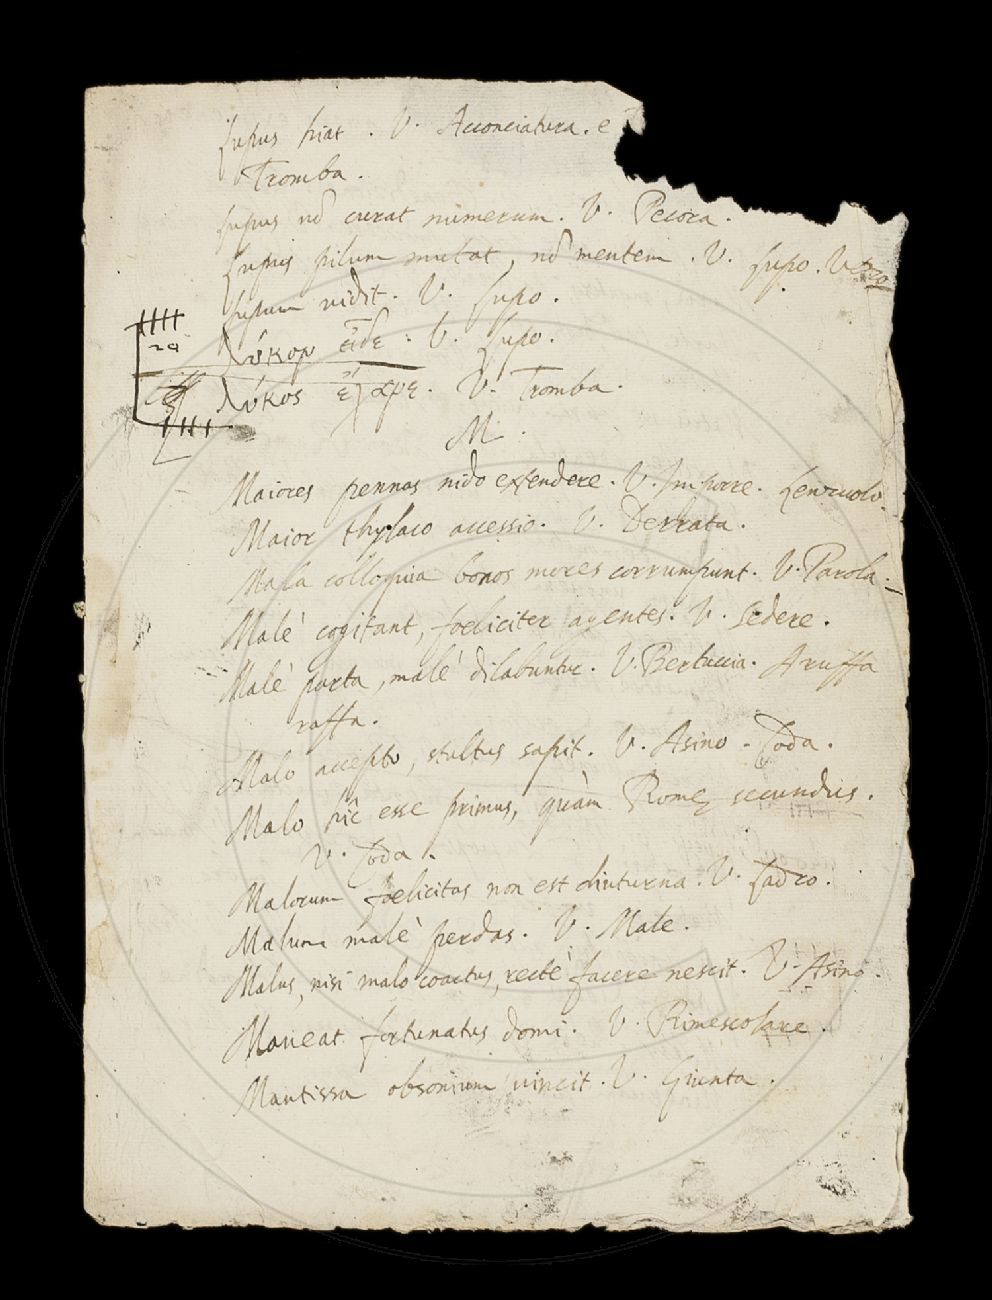 Lupus hiat. V. Acconciatura. e
Tromba.
Lupus nō curat numerum. V. Pecora.
Lupus pilum mutat, nō mentem. V. Lupo. Vezzo
Lupum vidit. V. Lupo.
λύκον εἶδε: V. Lupo.
λύκος ἔχανε. V. Tromba.
M.
Maiores pennas nido extendere. V. Imporre. Lenzuolo.
Maior thylaco accessio. V. Derrata.
Mala colloquia bonos mores corrumpunt. V. Parola.
Malè cogitant, foeliciter agentes. V. Sedere.
Malè parta, malè dilabuntur. V. Bertuccia. Aruffa
raffa.
Malo accepto, stultus sapit. V. Asino. Coda.
Malo hîc esse primus, quàm Romę secundus.
V. Coda.
Malorum foelicitas non est diuturna. V. Ladro.
Malum malè perdas. V. Male.
Malus, nisi malo coactus, rectè facere nescit. V. Asino.
Maneat fortunatus domi. V. Rimescolare.
Mantissa obsonium vincit. V. Giunta.